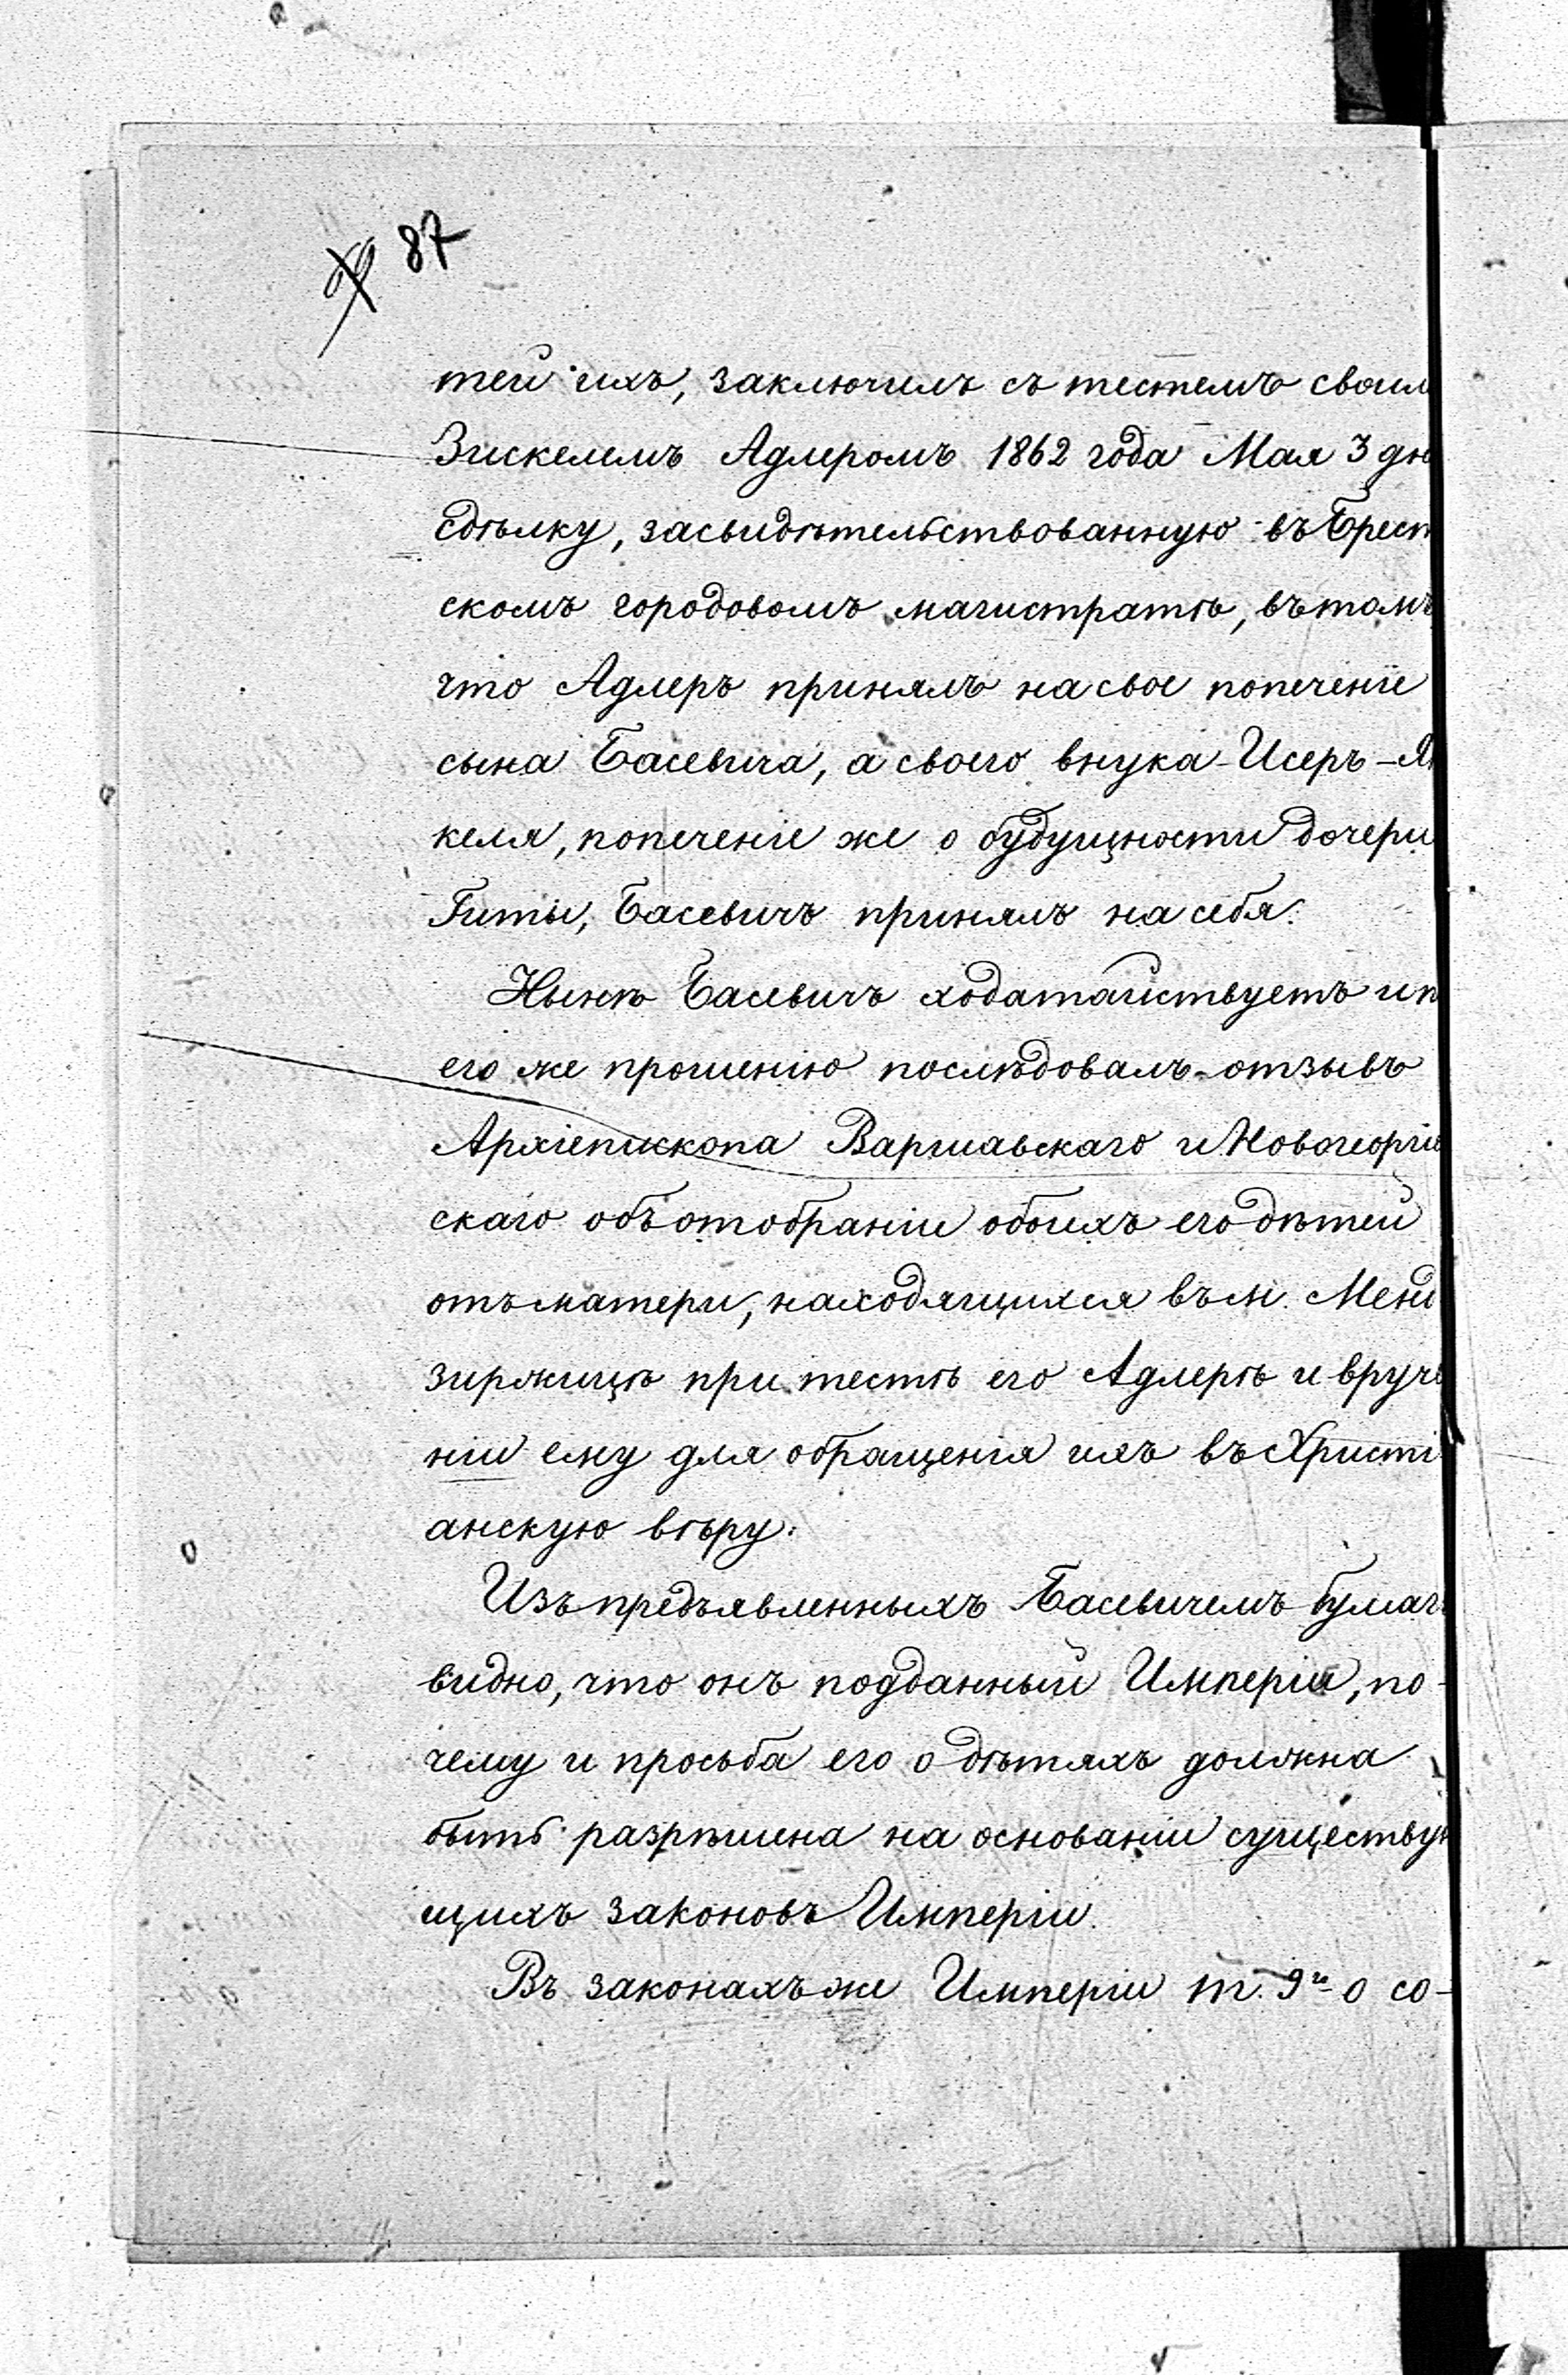 69 87
тей ихъ, заключилъ съ тестемъ своим
Зискелемъ Адлеромъ 1862 года Мая 3 дн
сдѣлку, засвидѣтельствованную въ Брест
скомъ городовомъ магистратѣ, въ томъ
что Адлеръ принялъ на свое попеченіе
сына Басевича, а своего внука Исеръ-Ян
келя, попеченіе же о будущности дочери
Гиты, Басевичъ принялъ на себя.
Нынѣ Басевичъ ходатайствуетъ и п
его же прошенію послѣдовалъ отзывъ
Архіепископа Варшавскаго и Новогеоргіев
скаго объ отобраніи обоихъ его дѣтей
отъ матери, находящихся въ м. Менд
зиржицѣ при тестѣ его Адлерѣ и вруче
ніи ему для обращенія ихъ въ Христі
анскую вѣру.
Изъ предъявленныхъ Басевичемъ бумагъ
видно, что онъ подданный Имперіи, по-
чему и просьба его о дѣтяхъ должна
быть разрѣшена на основаніи существую
щихъ законовъ Имперіи.
Въ законахъ же Имперіи т. 9й о со-